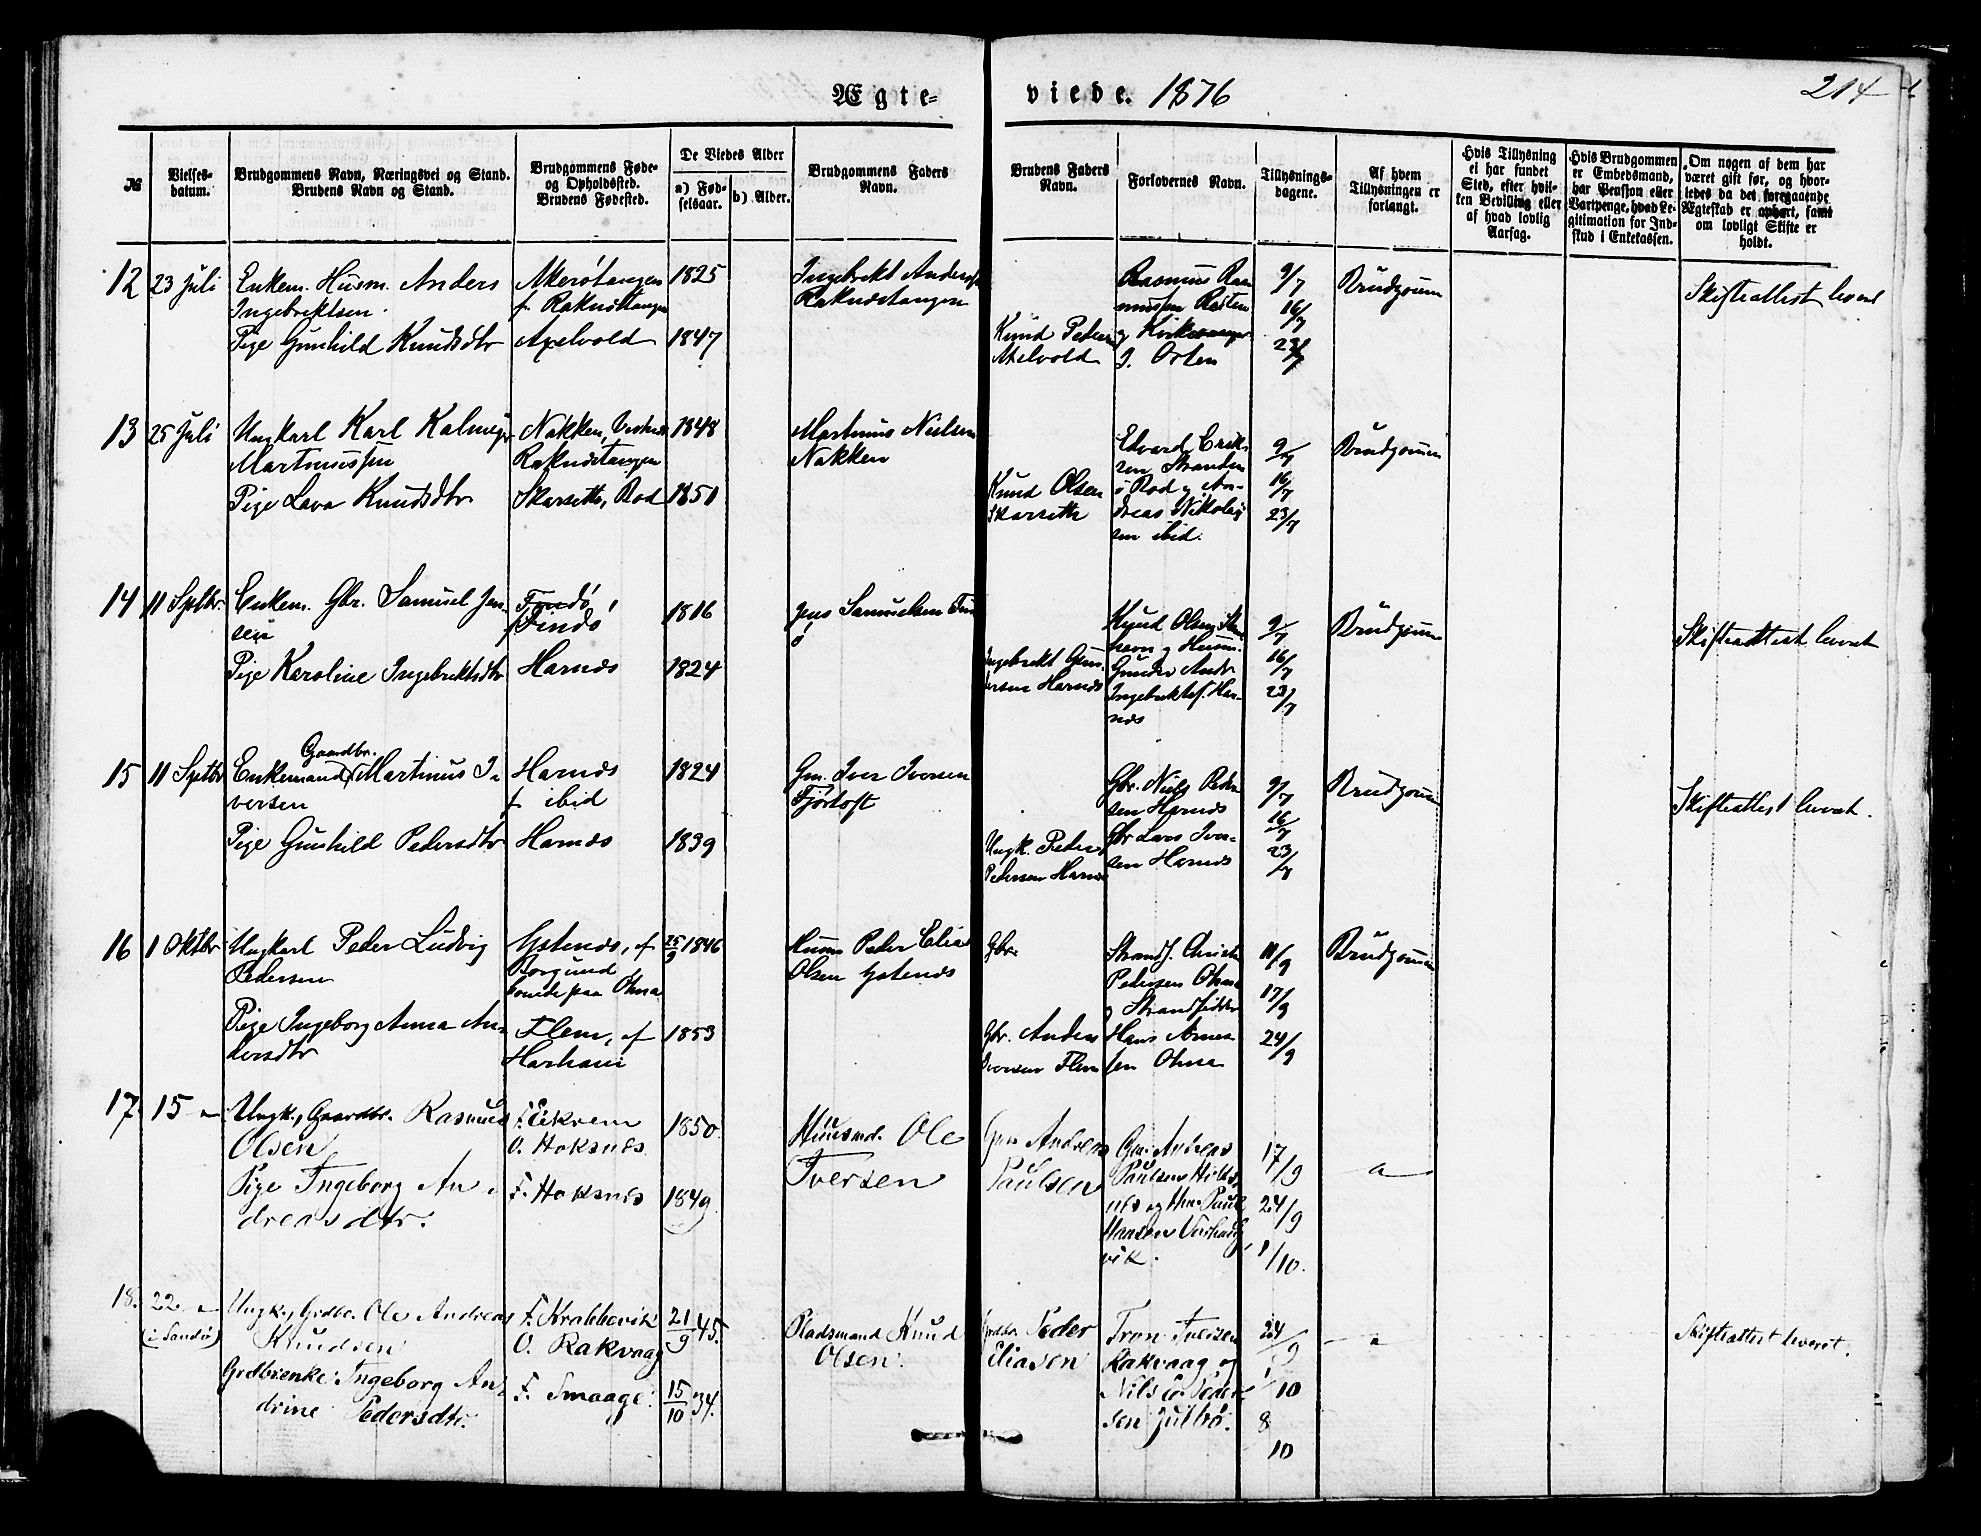 Ægte-
viede. 1876
214
№
Vielses-
datum.
Brudgommens Navn, Næringsvei og Stand.
Brudens Navn og Stand.
Brudgommens Føde-
og Opholdssted.
Brudens Fødested.
De Viedes Alder
a) Fød-
selsaar.
b) Alder.
Brudgommens Faders
Navn.
Brudens Faders
Navn.
Forlovernes Navn.
Tillysnings-
dagene.
Af hvem
Tillysningen er
forlangt.
Hvis Tillysning
ei har fundet
Sted, efter hvil-
ken Bevilling eller
af hvad lovlig
Aarsag.
Hvis Brudgommen
er Embedsmand,
har Pension eller
Vartpenge, hvad Le-
gitimation for Ind-
skud i Enkekassen.
Om nogen af dem har
været gift før, og hvor-
ledes da det foregaaende
Ægteskab er ophørt, samt
om lovligt Skifte er
holdt.
12
23 Juli
Enkem. Husm. Anders
Ingebrektsen.
Pige Gunhild Knudsdtr
Akerötangen
f. Raknestangen
Axelvold
1825
1847
Ingebrekt Anders
Raknestangen
Knud Peders
Axelvold
Rasmus Ras
mussen Rösten
g. Orten
9/7
16/7
23/7
Brudgom
Skifteattest levert
13
25 Juli
Ungkarl Karl Kalmeyr
Martinussen
Pige Lava Knudsdtr
Nakken, Vestnes
Raknestangen
Skarseth, Rod
1848
1850
Martinus Nielsen
Nakken
Knud Olsen
Skarseth
Edvard Erik-
sen Stranden
i Rod og An-
dreas Nikolai
sen ibid.
9/7
16/7
23/7
Brudgommen
14
11 Septbr.
Enkem. Gbr. Samuel Jen-
sen
Pige Karoline Ingebrektsdtr
Findö,
f. Findö
Harnös
1816
1824
Jens Samuelsen Find
ö
Ingebrekt Gun-
dersen Harnös
Knud Olsen
havn og Husm.
Gunder Andr
Ingebrektsf. Har-
nös
9/7
16/7
23/7
Brudgom
Skifteattest levert
15
11 Septbr
Gaardbr.
Enkemand Martinus I-
versen
Pige Gunhild Pedersdtr
Harnös
f ibid
Harnös
1824
1839
Gm. Iver Iversen
Fjörtoft
Ungk. Peder
Pedersen Harnö
Gbr. Niels Peder
sen Harnös
Gbr Lars Iver-
sen Harnös
9/7
16/7
23/7
Brudgommen
Skifteattest levert.
16
1 Oktbr
Ungkarl Peder Ludvig
Pedersen
Pige Ingeborg Anna An-
dersdtr
Ystenös, af
Borgund
boende paa Ohna
Flem, af
Harham
25/9 1846
1853
Husm Peder Elias
Olsen Ystenös
Gbr.
Gbr. Anders
Iversen Flem
Strands. Christ
Pedersen Ohna
g Strandsidder
Hans Arne
sen Ohna
11/9
17/9
24/9
Brudgommen
17.
15 –
Ungk., Gaardbr. Rasmus
Olsen
Pige Ingeborg An-
dreasdtr.
F. Eikrem
O. Hoksnes
F. Hoksnes
1850.
1849
Huusmd. Ole
Iversen
Gm Andreas
Paulsen
Gm. Andreas
Paulsen Hoks-
nes og Paul
Hansen
vik.
17/9
24/9
1/10.
– „ –
18.
22 –
(i Sandö)
Ungk., Grdbr. Ole Andreas
Knudsen
Grdbrenke: Ingeborg An-
drine Pedersdtr.
F. Krabbevik
O. Rakvaag
F. Smaage:
21/9 45.
15/10 34.
Baadsmand Knud
Olsen.
Grdbr. Peder
Eliasen
Tron Iversen
Rakvaag og
Nils Peder-
sen Julbö.
24/9
1/10
8
10
– „ –
Skifteattest leveret.